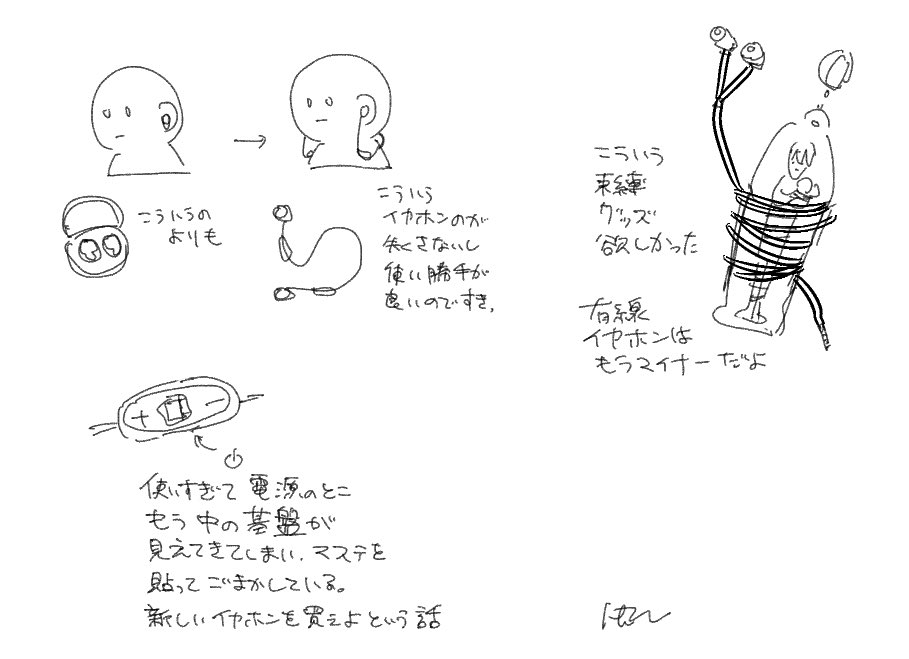 こういうの
よりも
こういう
イヤホンのが
失くさないし
使い勝手が
良いのですき。
こういう
束縛
グッズ
欲しかった
有線
イヤホンは
もうマイナーだよ
+ -
使いすぎて 電源のとこ
もう 中の基盤が
見えてきてしまい、マステを
貼って ごまかしている。
新しいイヤホンを買えよという話